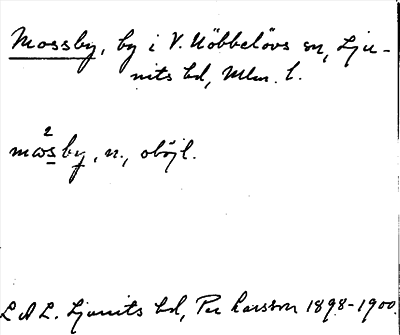 Mossby, by i V. Nöbbelövs sn, Lju-
nits hd, Mlm. l.
2
mωsby, n., oböjl.
LAL. Ljunits hd, Per Larsson 1898-1900.